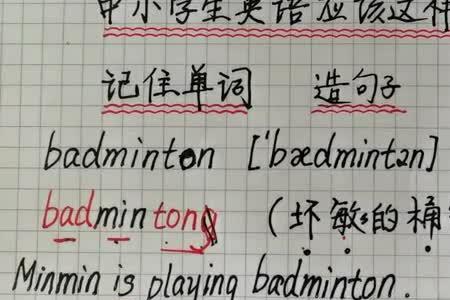 中小学生英语应该这样
记住单词 造句子
badminton ['bædmintən]
badminton (坏敏的桶
Minmin is playing badminton.